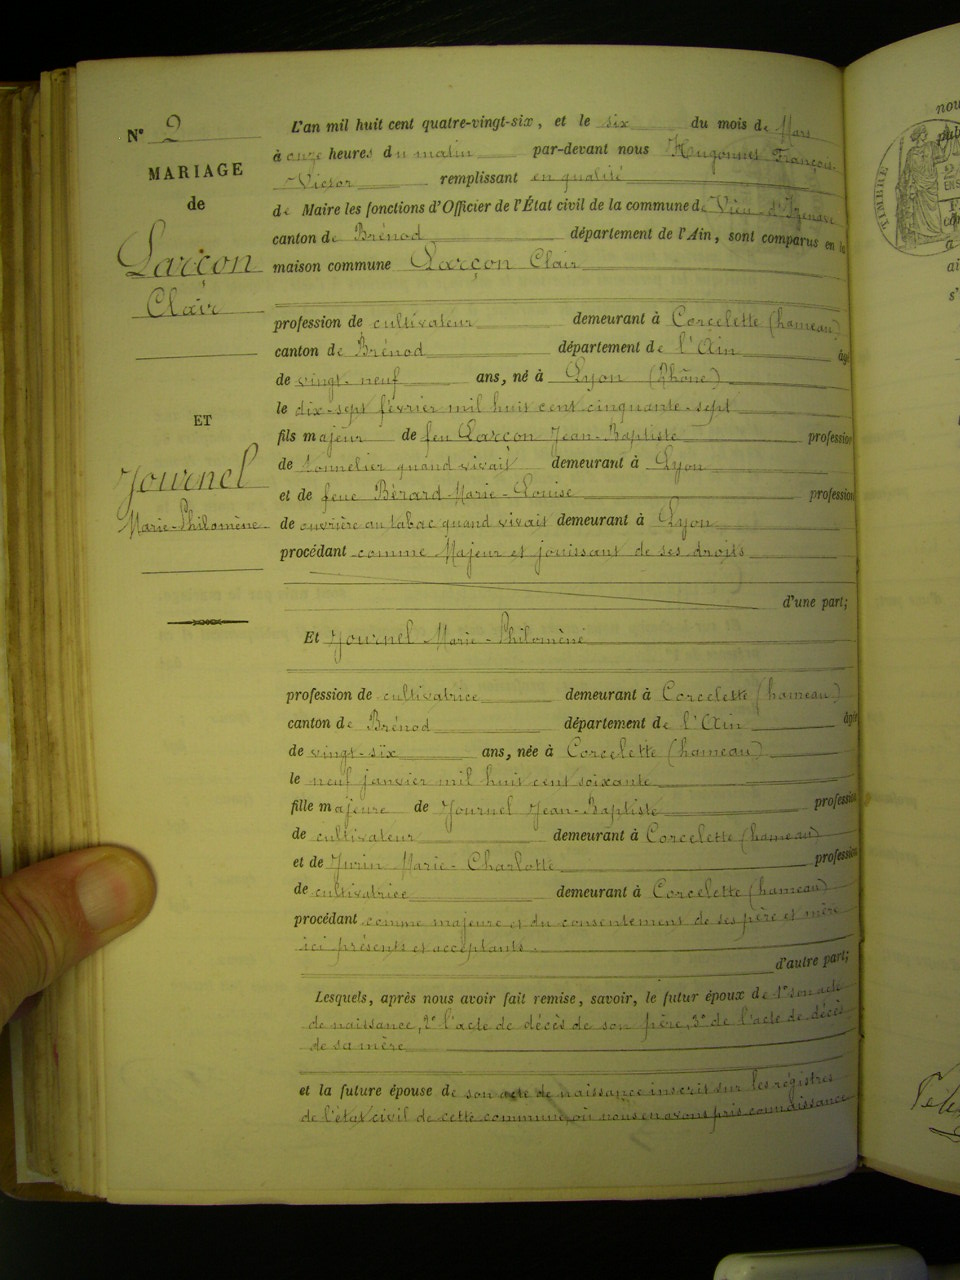 N° 2
MARIAGE
de
Larçon
Clair
ET
Journel
Marie-Philomène
L'an mil huit cent quatre-vingt-six, et le six du mois de Mars
à onze heures du matin par-devant nous Hugonnet François-
Victor remplissant en qualité
de Maire les fonctions d'Officier de l'État civil de la commune de Vieu-d'Izenave
canton de Brénod département de l'Ain, sont comparus en la
maison commune Larçon Clair
profession de cultivateur demeurant à Corcelette (hameau)
canton de Brénod département de l'Ain âgé
de vingt-neuf ans, né à Lyon (Rhône)
le dix-sept février mil huit cent cinquante-sept
fils majeur de feu Larçon Jean-Baptiste profession
de tonnelier quand vivait demeurant à Lyon
et de feue Bérard Marie-Louise profession
de ouvrière au tabac quand vivait demeurant à Lyon
procédant comme Majeur et jouissant de ses droits
d'une part;
Et Journel Marie-Philomène
profession de cultivatrice demeurant à Corcelette (hameau)
canton de Brénod département de l'Ain âgée
de vingt-six ans, née à Corcelette (hameau)
le neuf janvier mil huit cent soixante
fille majeure de Journel Jean-Baptiste profession
de cultivateur demeurant à Corcelette (hameau)
et de Jurin Marie-Charlotte profession
de cultivatrice demeurant à Corcelette (hameau)
procédant comme majeure et du consentement de ses père et mère
ici présents et acceptants.
d'autre part;
Lesquels, après nous avoir fait remise, savoir, le futur époux de 1° son acte
de naissance, 2° l'acte de décès de son père, 3° de l'acte de décès
de sa mère
et la future épouse de son acte de naissance inscrit sur les régistres
de l'état civil de cette commune, où nous en avons pris connaissance
TIMBRE
nou